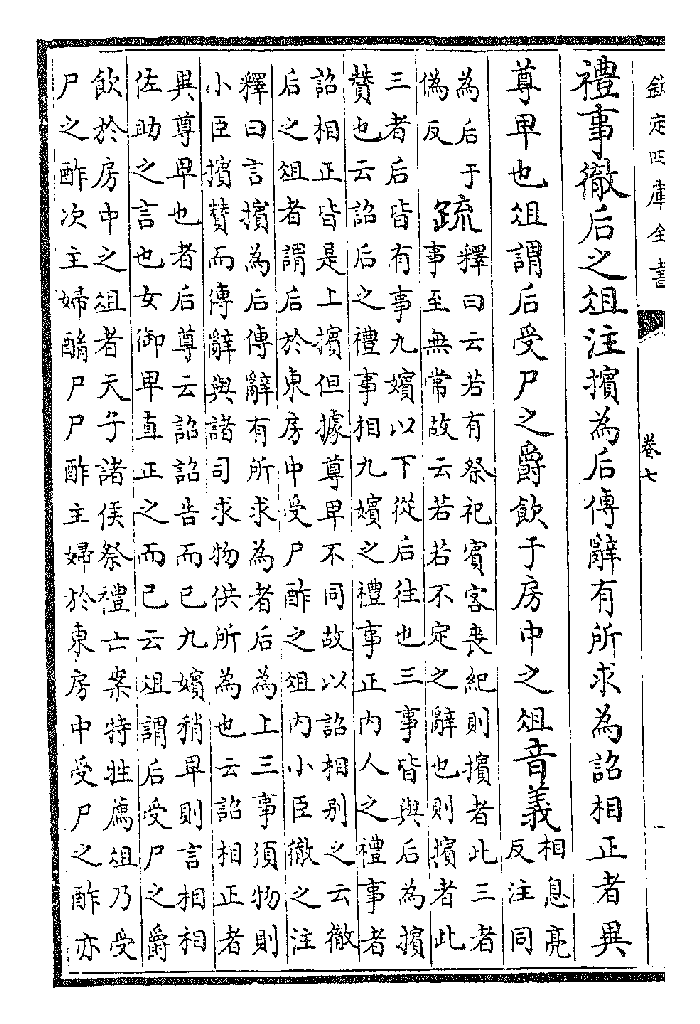 欽定四庫全書
卷七
禮事徹后之俎注擯為后傳辭有所求為詔相正者異
尊卑也俎謂后受尸之爵飲于房中之俎音義相息亮
反注同
為后于
偽反疏釋曰云若有祭祀賓客喪紀則擯者此三者
事至無常故云若若不定之辭也則擯者此
三者后皆有事九嬪以下從后往也三事皆與后為擯
贊也云詔后之禮事相九嬪之禮事正內人之禮事者
詔相正皆是上擯但據尊卑不同故以詔相別之云徹
后之俎者謂后於東房中受尸酢之俎內小臣徹之注
釋曰言擯為后傳辭有所求為者后為上三事須物則
小臣擯贊而傳辭與諸司求物供所為也云詔相正者
異尊卑也者后尊云詔詔告而已九嬪稍卑則言相相
佐助之言也女御卑直正之而已云俎謂后受尸之爵
飲於房中之俎者天子諸侯祭禮亡案特牲薦俎乃受
尸之酢次主婦酳尸尸酢主婦於東房中受尸之酢亦